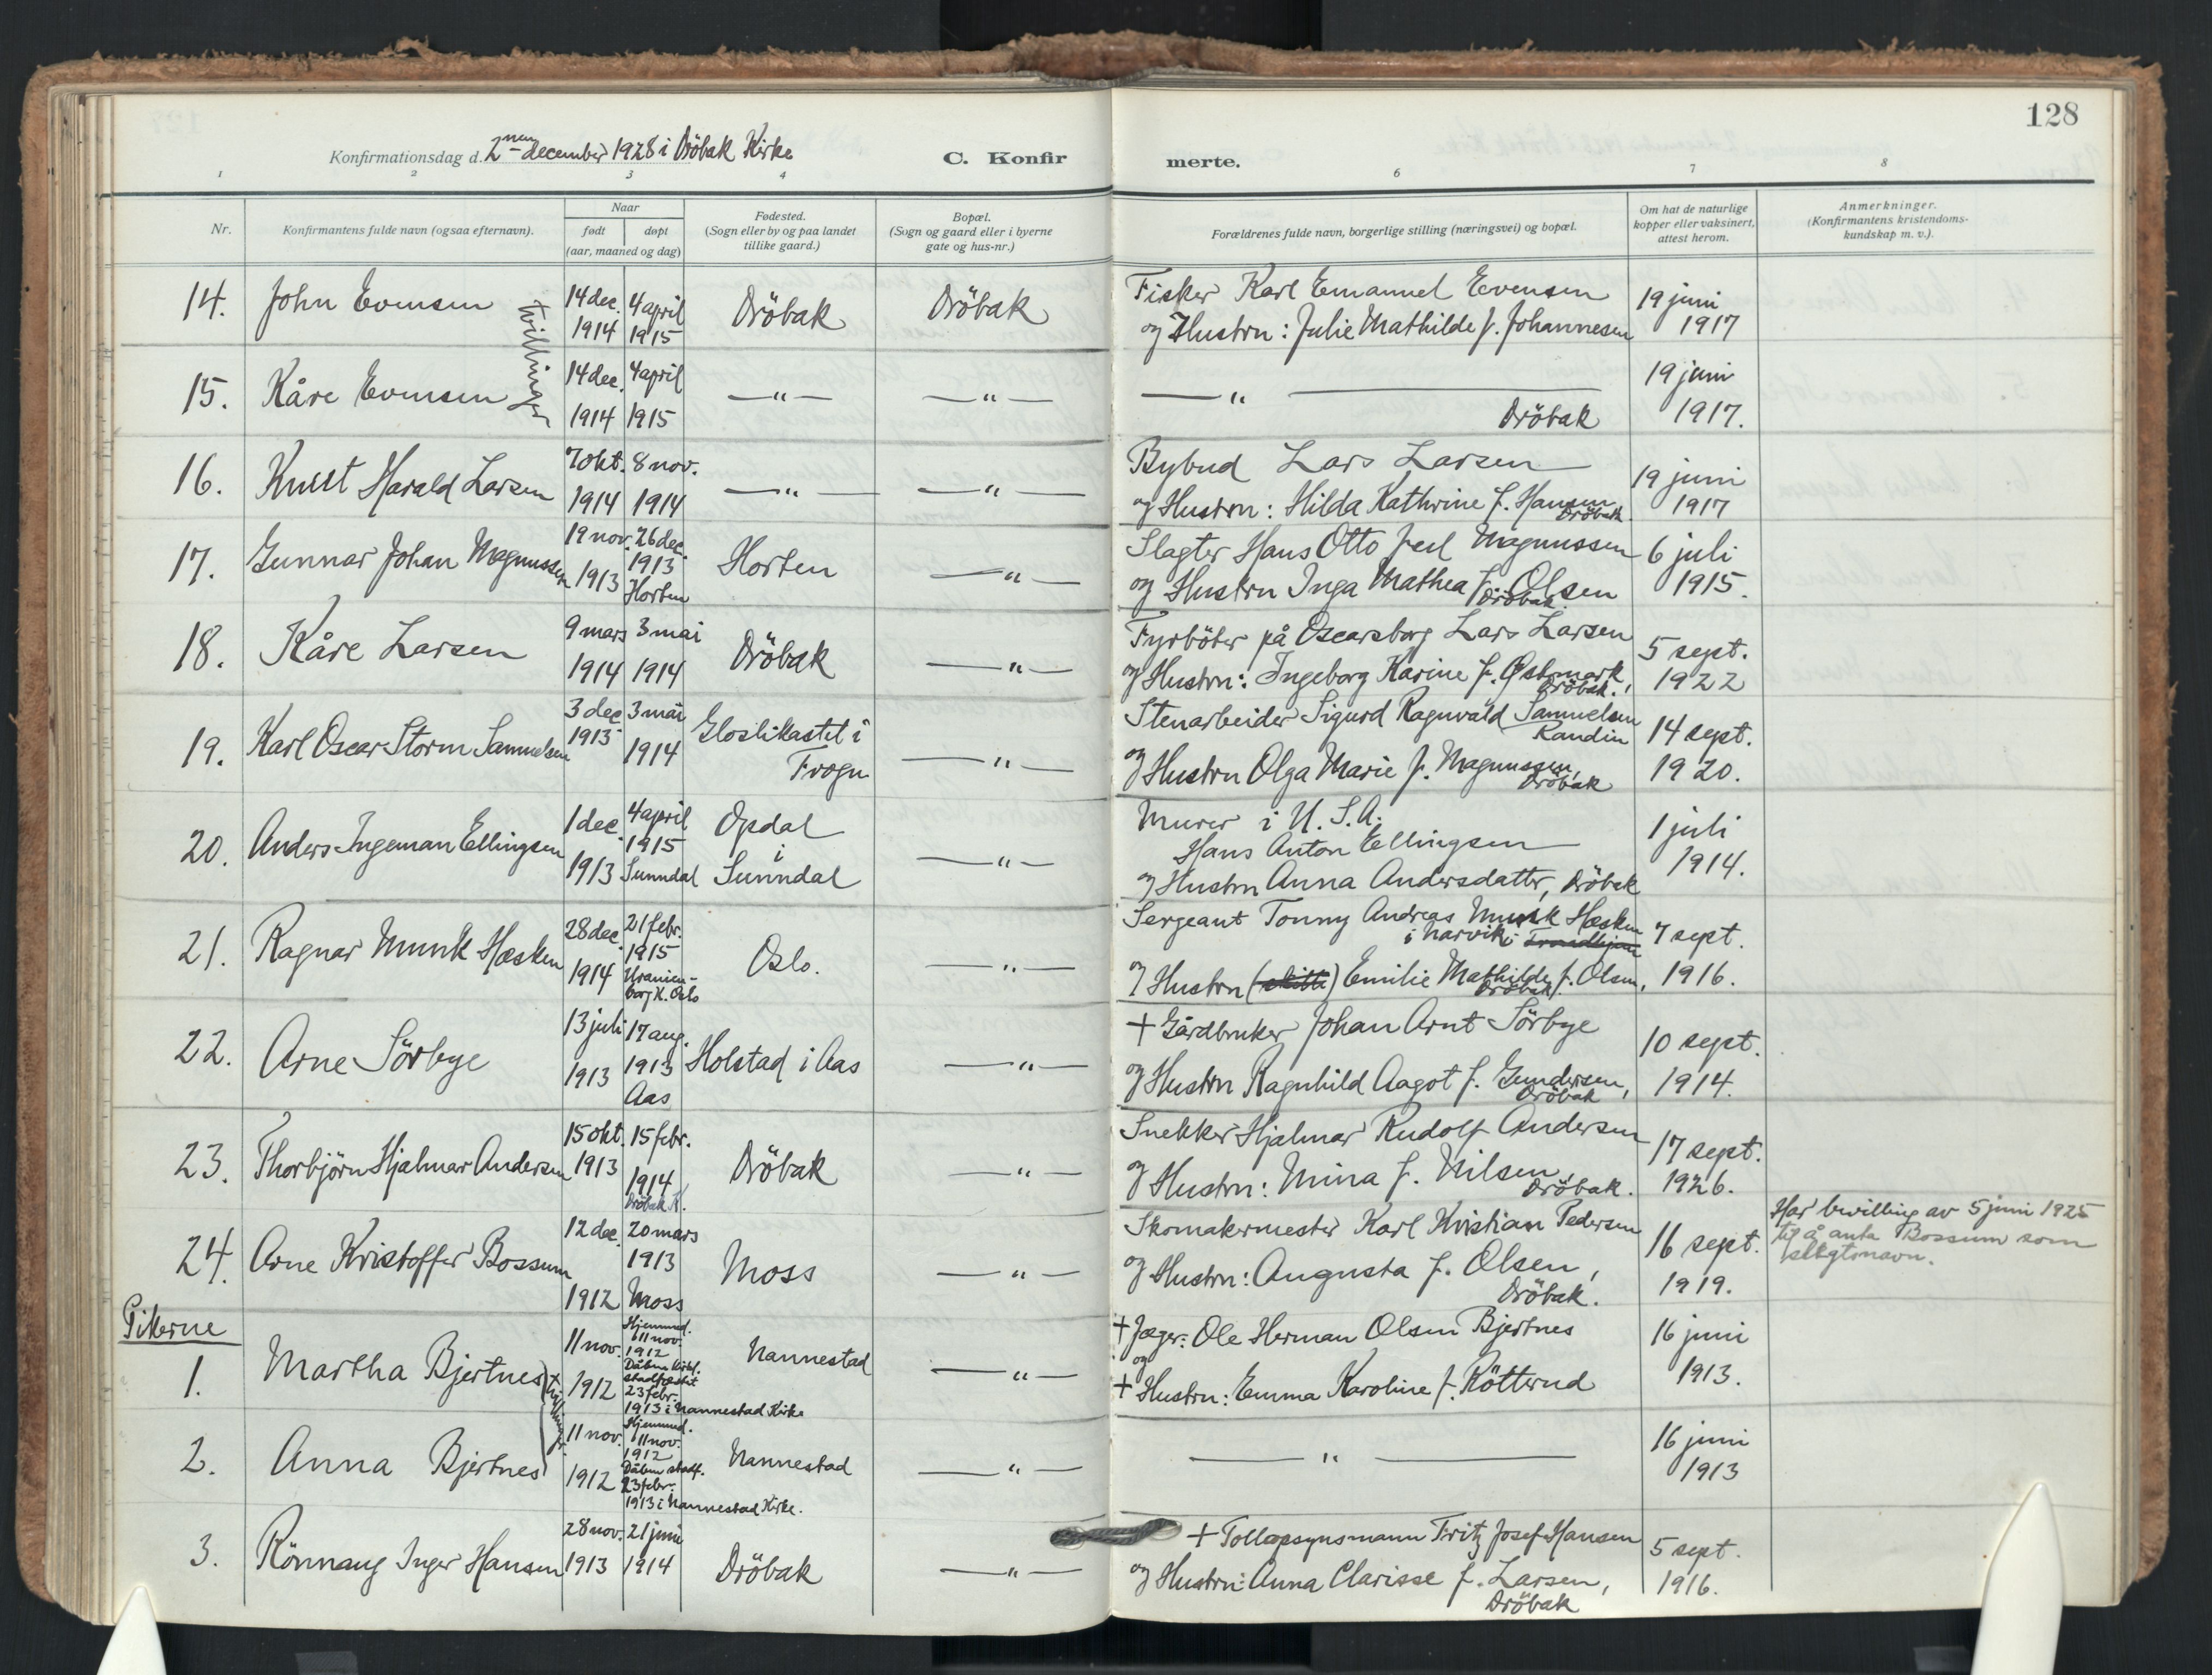 128
Konfirmationsdag d. 2nen december 1928 i Dröbak Kirke
C. Konfirmerte.
1 2 3 4 6 7 8
Nr.
Konfirmantens fulde navn (ogsaa efternavn).
Naar
født døpt
(aar, maaned og dag)
Fødested.
(Sogn eller by og paa landet
tillike gaard.)
Bopæl.
(Sogn og gaard eller i byerne
gate og hus-nr.)
Forældrenes fulde navn, borgerlige stilling (næringsvei) og bopæl.
Om hat de naturlige
kopper eller vaksinert,
attest herom.
Anmerkninger.
(Konfirmantens kristendoms-
kundskap m. v.).
14. John Evensen
tvillinger
14 dec. 1914
4 april 1915
Dröbak
Dröbak
Fisker Karl Emanuel Evensen
og Hustru: Julie Mathilde f. Johannesen
19 juni
1917
15. Kåre Evensen
14 dec. 1914
4 april 1915
— " —
— " —
— " —
Dröbak
19 juni
1917.
16. Knut Harald Larsen
7 okt. 1914
8 nov. 1914
— " —
— " —
Bybud Lars Larsen
og Hustru: Hilda Kathrine f. Hansen
Dröbak.
19 juni
1917
17. Gunnar Johan Magnussen
19 nov. 1913
26 dec. 1913
Horten
Horten
— " —
Slagter Hans Otto Magnussen
og Hustru Inga Mathea f. Olsen
Dröbak.
6 juli
1915.
18. Kåre Larsen
9 mars 1914
3 mai 1914
Dröbak
— " —
Fyrböter på Oscarsborg Lars Larsen
og Hustru: Ingeborg Karine f. Østmark,
Dröbak.
5 sept.
1922
19. Karl Oscar Storm Samuelsen
3 dec 1913
3 mai 1914
Gloslikastet i
Frogn
— " —
Stenarbeider Sigurd Ragnvald Samuelsen
Randin
og Hustru Olga Marie f. Magnussen,
Dröbak
14 sept.
1920.
20. Anders Ingeman Ellingsen
1 dec. 1913
4 april 1915
Sunndal
Opdal
i
Sunndal
— " —
Murer i U.S.A.
Hans Anton Ellingsen
og Hustru Anna Andersdatter, Dröbak
1 juli
1914.
21. Ragnar Munk Hæsken
28 dec. 1914
21 febr. 1915
Uranien-
borg K. Oslo
Oslo.
— " —
Sergeant Tonny Andreas Munk Hæsken
i Narvik i Trondhjem
og Hustru (skilte) Emilie Mathilde f. Olsen,
Dröbak.
7 sept.
1916.
22. Arne Sörbye
13 juli 1913
17 aug. 1913
Aas
Holstad i Aas
— " —
+ Gårdbruker Johan Arnt Sörbye
og Hustru Ragnhild Aagot f. Gundersen,
Dröbak
10 sept.
1914.
23. Thorbjörn Hjalmar Andersen
15 okt. 1913
15 febr. 1914
Dröbak K.
Dröbak
— " —
Snekker Hjalmar Rudolf Andersen
og Hustru: Mina f. Nilsen,
Dröbak.
17 sept.
1926.
24. Arne Kristoffer Bossum
12 dec. 1912
20 mars 1913
Moss
Moss
— " —
Skomakermester Karl Kristian Pedersen
og Hustru: Augusta f. Olsen,
Dröbak.
16 sept.
1919.
Har bevilling av 5 juni 1925
til å anta Bossum som
slegtsnavn.
Pikerne
1. Martha Bjertnes
tvillinger
11 nov. 1912
Hjemmed.
11 nov.
1912
Dåben kirkel.
stadfæstet
23 febr.
1913 i Nannestad Kirke
Nannestad
— " —
+ Jæger: Ole Herman Olsen Bjertnes
og
+ Hustru: Emma Karoline f. Rötterud
16 juni
1913.
2. Anna Bjertnes
11 nov. 1912
Hjemmed.
11 nov.
1912
Dåben stadf.
23 febr.
1913 i Nannestad Kirke.
Nannestad
— " —
— " —
16 juni
1913
3. Rönnaug Inger Hansen
28 nov. 1913
21 juni 1914
Dröbak
— " —
+ Tollopsynsmann Fritz Josef Hansen
og Hustru: Anna Clarisse f. Larsen,
Dröbak
5 sept.
1916.